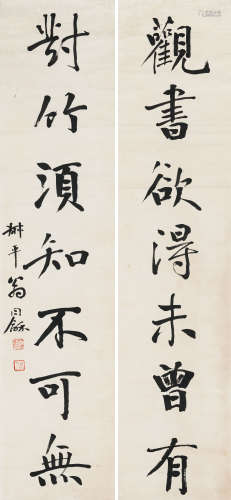 觀書欲得未曾有
對竹須知不可無
翁同龢